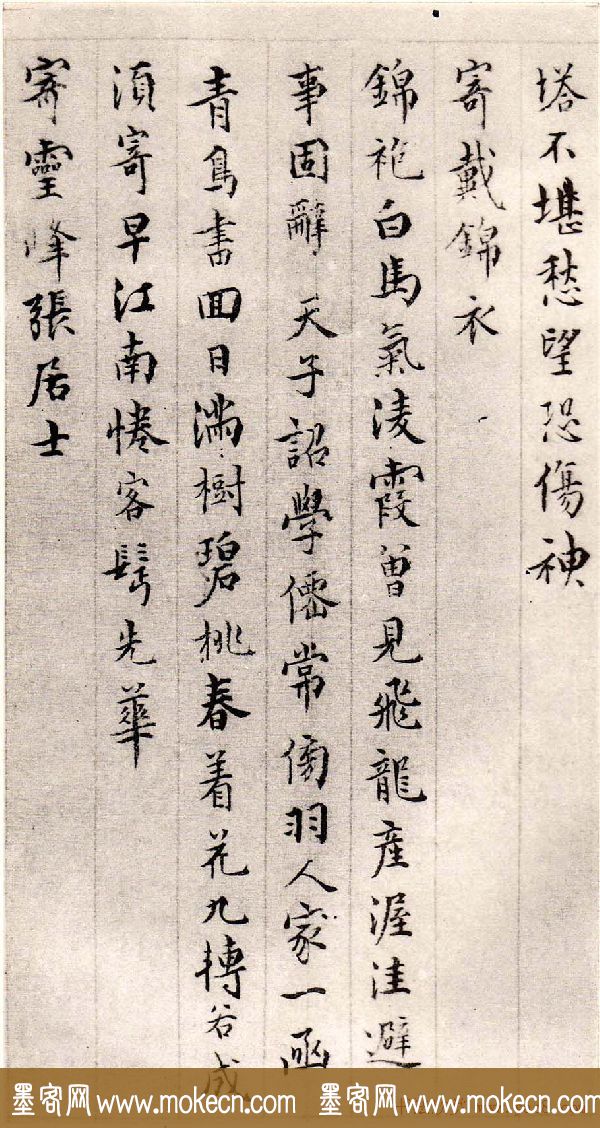 塔不堪愁望恐傷神
寄戴錦衣
錦袍白馬氣淩霞曾見飛龍產渥洼避
事固辭天子詔學儒常傍羽人家一函
青鳥書回日滿樹碧桃春着花九轉若成
須寄早江南倦客鬂先華
寄靈峰張居士
墨客网 www.mokecn.com 墨客网 www.mokecn.com